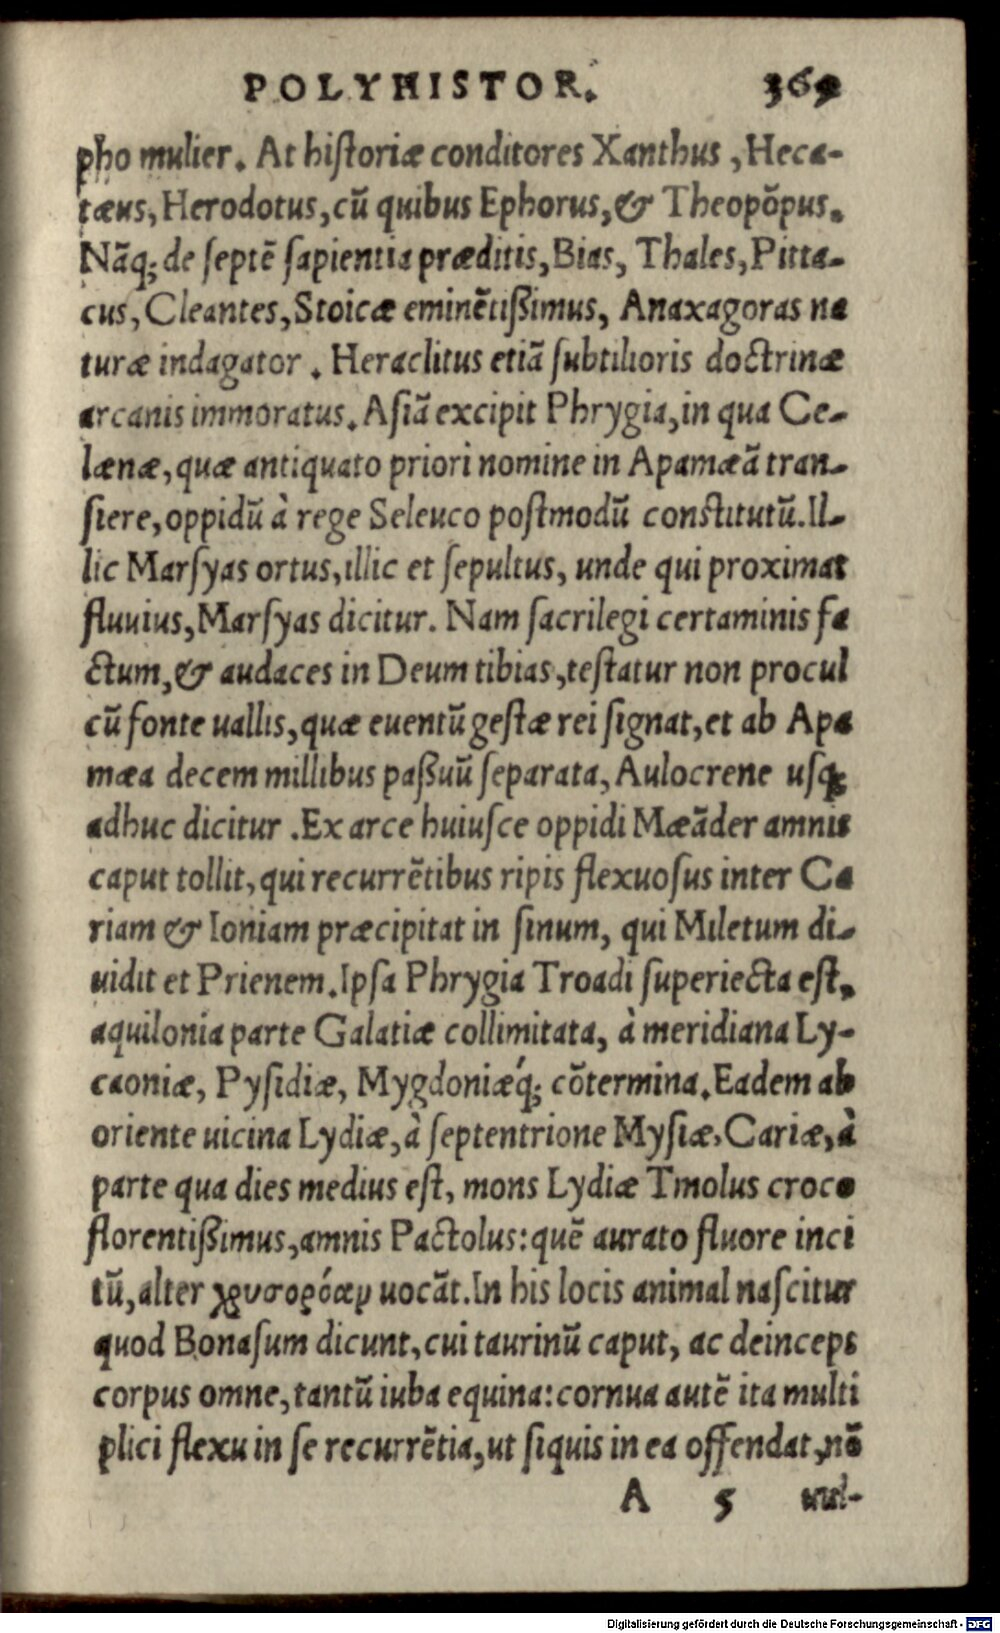 POLYHISTOR. 369
pho mulier. At historiæ conditores Xanthus, Heca-
tæus, Herodotus, cũ quibus Ephorus, & Theopõpus.
Nãq; de septẽ sapientia præditis, Bias, Thales, Pitta-
cus, Cleantes, Stoicæ eminẽtißimus, Anaxagoras na
turæ indagator. Heraclitus etiã subtilioris doctrinæ
arcanis immoratus. Asiã excipit Phrygia, in qua Ce-
lænæ, quæ antiquato priori nomine in Apamæã tran-
siere, oppidũ à rege Seleuco postmodũ constitutũ. Il-
lic Marsyas ortus, illic et sepultus, unde qui proximat
fluuius, Marsyas dicitur. Nam sacrilegi certaminis fa
ctum, & audaces in Deum tibias, testatur non procul
cũ fonte uallis, quæ euentũ gestæ rei signat, et ab Apa
mæa decem millibus paßuũ separata, Aulocrene usq;
adhuc dicitur. Ex arce huiusce oppidi Mæãder amnis
caput tollit, qui recurrẽtibus ripis flexuosus inter Ca
riam & Ioniam præcipitat in sinum, qui Miletum di-
uidit et Prienem. Ipsa Phrygia Troadi superiecta est,
aquilonia parte Galatiæ collimitata, à meridiana Ly-
caoniæ, Pysidiæ, Mygdoniæq́; cõtermina. Eadem ab
oriente uicina Lydiæ, à septentrione Mysiæ, Cariæ, à
parte qua dies medius est, mons Lydiæ Tmolus croco
florentißimus, amnis Pactolus: quẽ aurato fluore inci
tũ, alter χρυσορόαν uocãt. In his locis animal nascitur
quod Bonasum dicunt, cui taurinũ caput, ac deinceps
corpus omne, tantũ iuba equina: cornua autẽ ita multi
plici flexu in se recurrẽtia, ut siquis in ea offendat, nõ
A 5 uul-
Digitalisierung gefördert durch die Deutsche Forschungsgemeinschaft - DFG